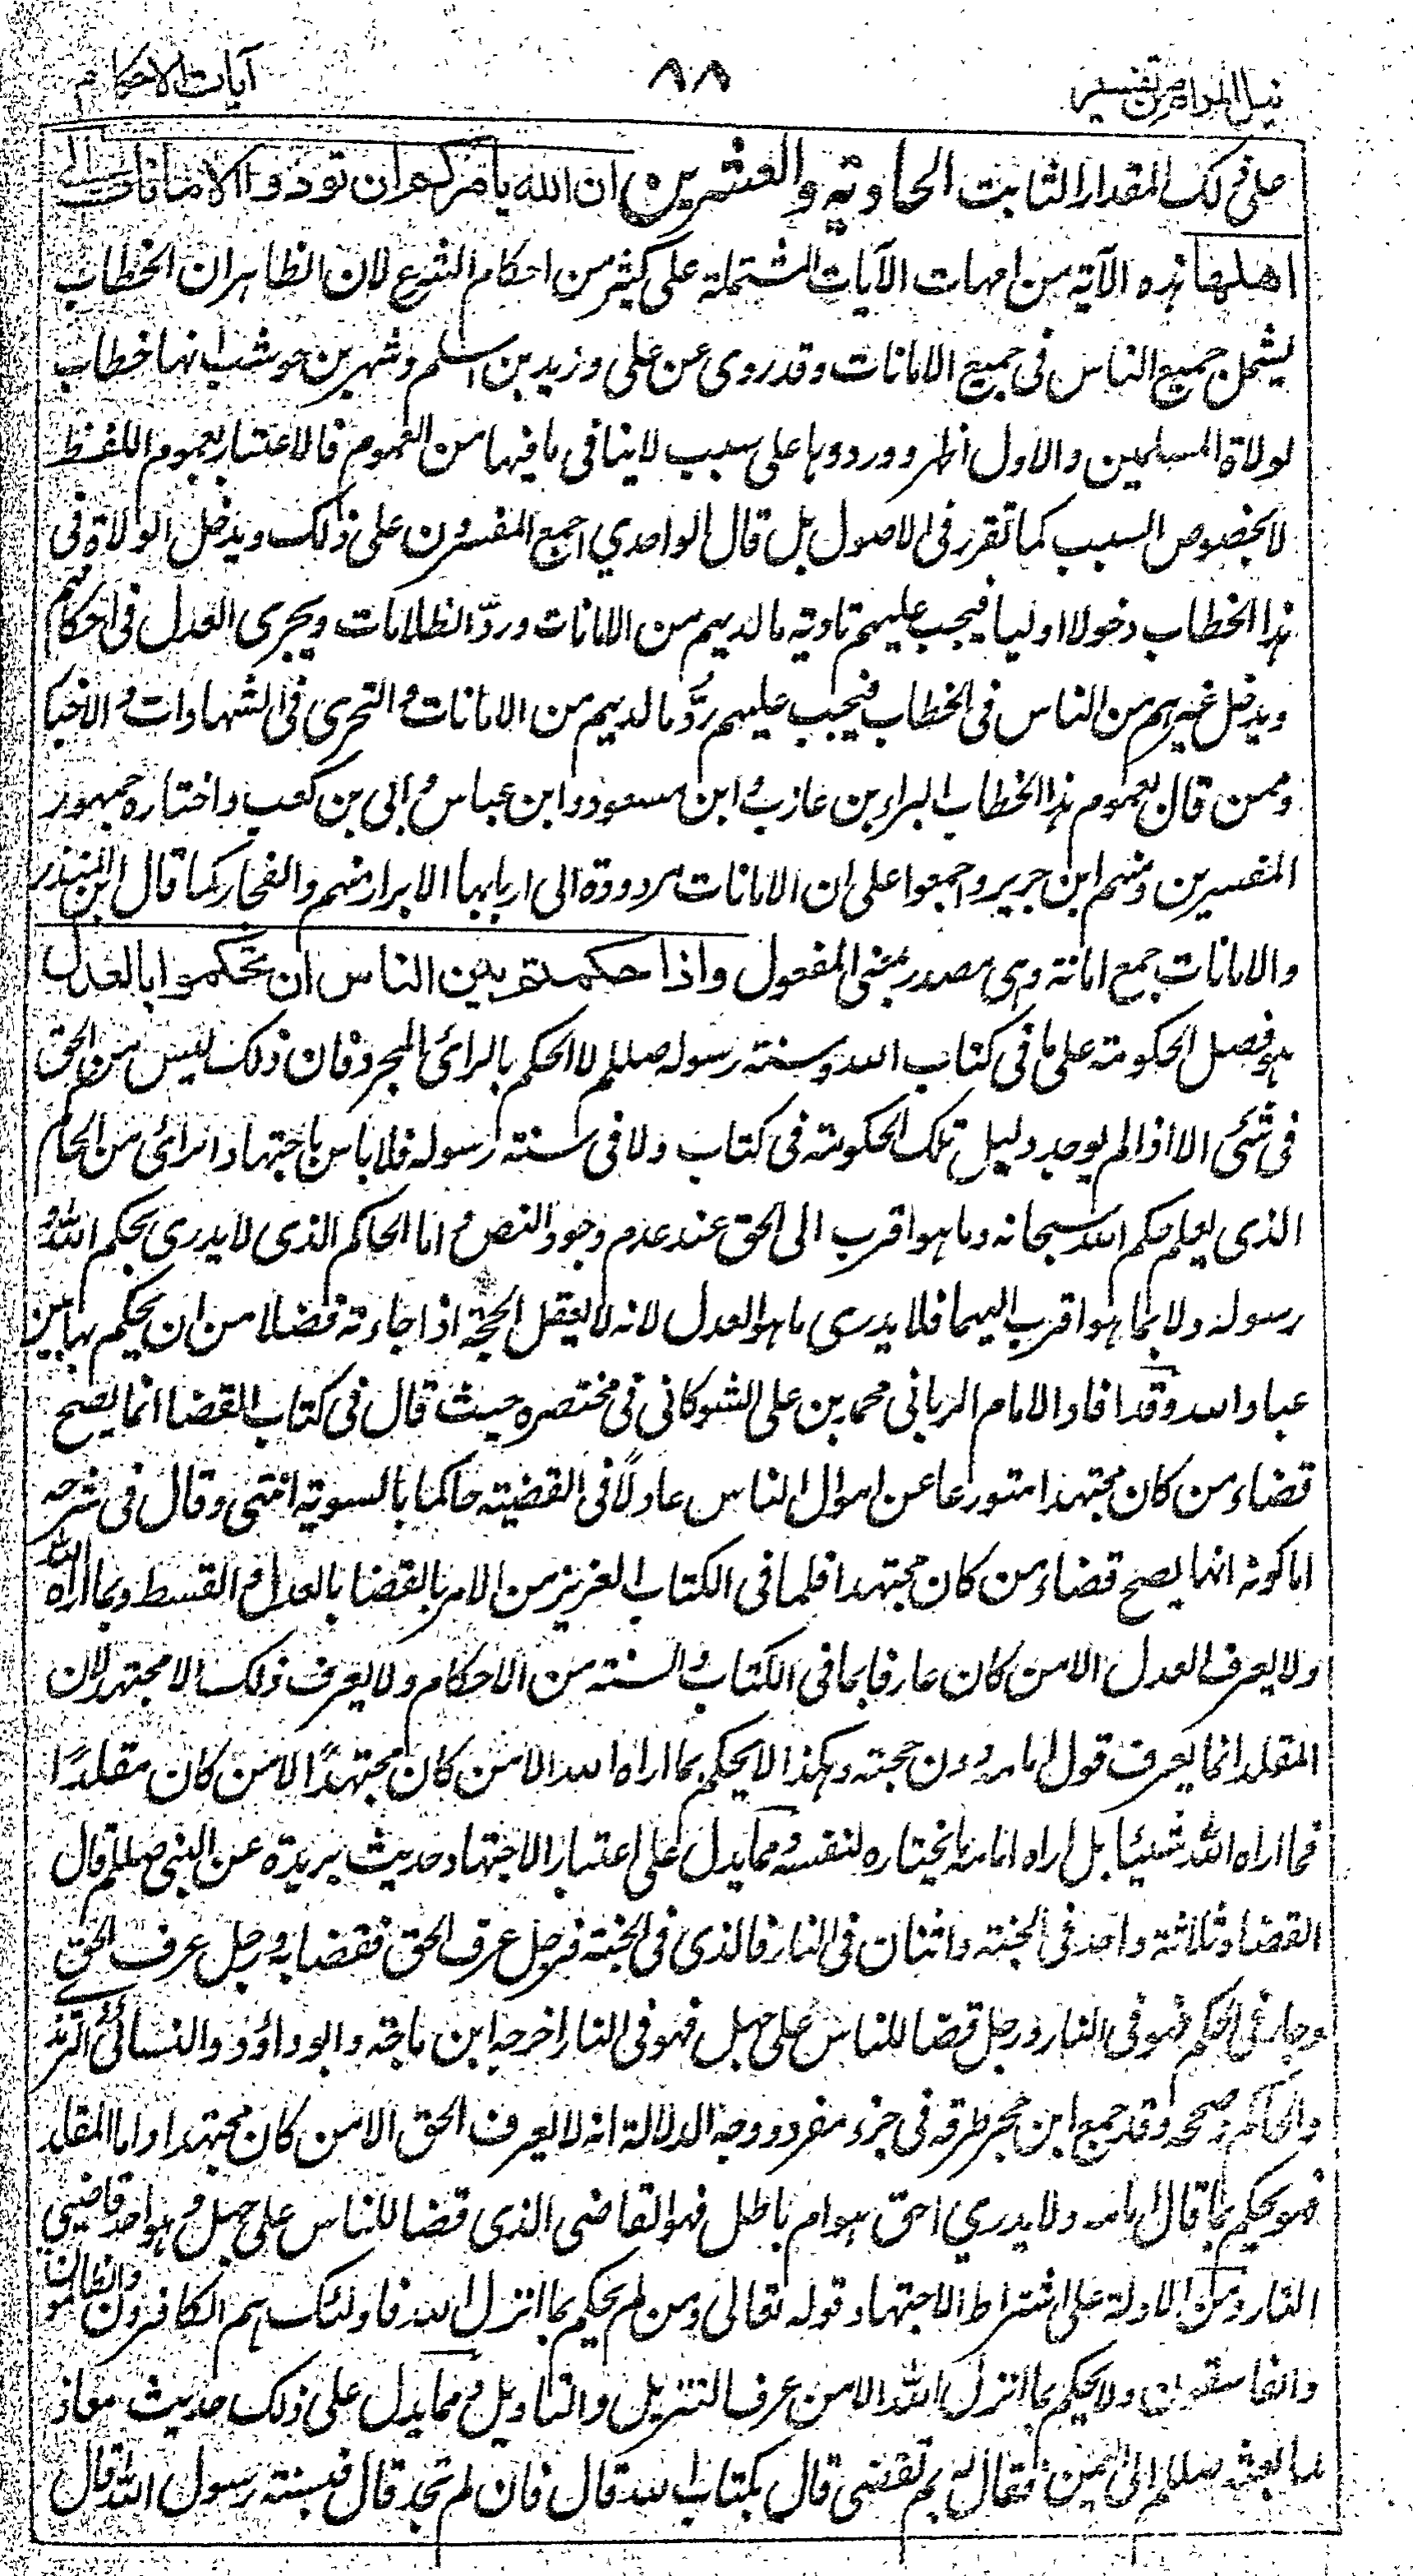 نيل المرام من تفسير ٨٨ آيات الاحكام
على ذلك المقدار الثابت الحادية والعشرين ان الله يامركم ان تودوا الامانات الى
اهلها هذه الآية من امهات الآيات المشتملة على كثير من احكام الشرع لان الظاهر ان الخطاب
يشمل جميع الناس فى جميع الامانات وقد روى عن على وزيد بن اسلم وشهر بن حوشب انها خطاب
لولاة المسلمين والاول اظهر وورودها على سبب لا ينافى ما فيها من العموم فالاعتبار بعموم اللفظ
لا بخصوص السبب كما تقرر فى الاصول بل قال الواحدي اجمع المفسرون على ذلك ويدخل الولاة فى
هذا الخطاب دخولا اوليا فيجب عليهم تادية ما لديهم من الامانات وردّ الظلامات وتحرى العدل فى احكامهم
ويدخل غيرهم من الناس فى الخطاب فيجب عليهم ردّ ما لديهم من الامانات والتحرى فى الشهادات والاخبار
وممن قال بعموم هذا الخطاب البراء بن عازب وابن مسعود وابن عباس وابى بن كعب واختاره جمهور
المفسرين ومنهم ابن جرير واجمعوا على ان الامانات مردودة الى اربابها الابرار منهم والفجار كما قال ابن المنذر
والامانات جمع امانة وهى مصدر بمعنى المفعول واذا حكمتم بين الناس ان تحكموا بالعدل
هو فصل الحكومة على ما فى كتاب الله وسنة رسوله صللم لا الحكم بالرائ المجرد فان ذلك ليس من الحق
فى شئ الا اذا لم يوجد دليل تلك الحكومة فى كتاب ولا فى سنة رسوله فلا باس باجتهاد الرائ من الحاكم
الذى يعلم حكم الله سبحانه وما هو اقرب الى الحق عند عدم وجود النص واما الحاكم الذى لا يدرى بحكم الله و
رسوله ولا بما هو اقرب اليهما فلا يدرى ما هو العدل لانه لا يعقل الحجة اذا جاءته فضلا من ان يحكم بها بين
عباد الله وقد افاد الامام الربانى محمد بن على الشوكانى فى مختصره حيث قال فى كتاب القضا انما يصح
قضاء من كان مجتهدا متورعا عن اموال الناس عادلًا فى القضية حاكما بالسوية انتهى وقال فى شرحه
اما كونه انما يصح قضاء من كان مجتهدا فلما فى الكتاب العزيز من الامر بالقضا بالعدل والقسط وبما اراه الله
ولا يعرف العدل الا من كان عارفا بما فى الكتاب والسنة من الاحكام ولا يعرف ذلك الا مجتهد لان
المقلد انما يعرف قول امامه دون حجته وهكذا لا يحكم بما اراه الله الا من كان مجتهدًا لا من كان مقلدًا
فما اراه الله شيئا بل اراه امامه ما يختاره لنفسه ومما يدل على اعتبار الاجتهاد حديث بريدة عن النبى صللم قال
القضاة ثلاثة واحد فى الجنة واثنان فى النار فالذى فى الجنة فرجل عرف الحق فقضا به ورجل عرف الحق
وجار فى الحكم فهو فى النار ورجل قضا للناس على جهل فهو فى النار اخرجه ابن ماجة وابو داؤد والنسائى والترمذى
والحاكم وصححه وقد جمع ابن حجر طرقه فى جزء مفرد ووجه الدلالة انه لا يعرف الحق الا من كان مجتهدا واما المقلد
فهو يحكم بما قال امامه ولا يدري احق هو ام باطل فهو القاضى الذى قضا للناس على جهل وهو احد قاضيى
النار ومن الادلة على اشتراط الاجتهاد قوله تعالى ومن لم يحكم بما انزل الله فاولئك هم الكافرون والظالمون
والفاسقون ولا يحكم بما انزل الله الا من عرف التنزيل والتاويل ومما يدل على ذلك حديث معاذ
لما بعثه صللم الى اليمن فقال له بم تقضى قال بكتاب الله قال فان لم تجد قال فبسنة رسول الله قال